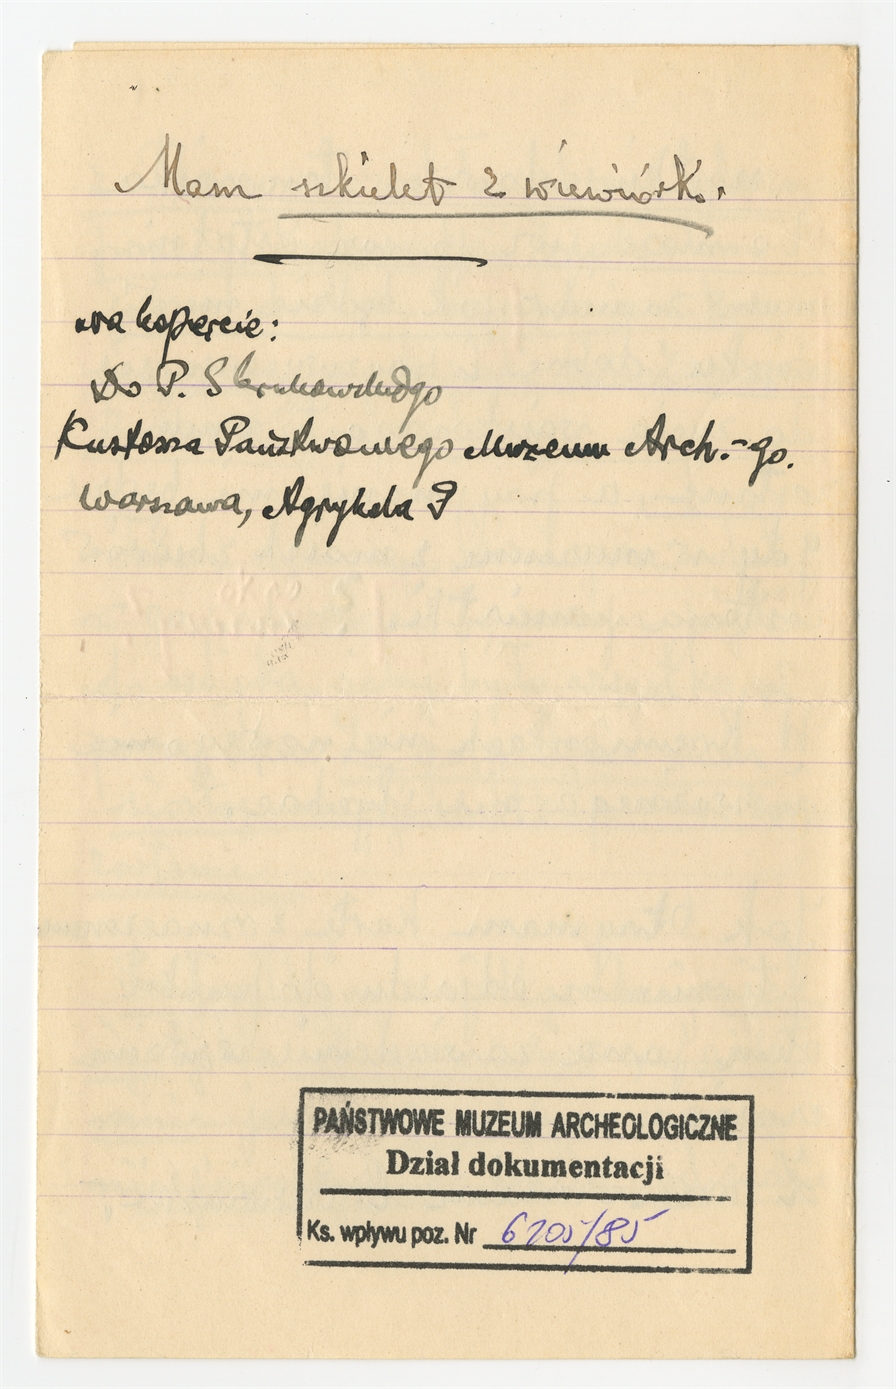 Mam szkielet z wiewiórk.
na kopercie:
Do P.
Kustosza Państwowego Muzeum Arch.-go.
Warszawa, Agrykola 9
PAŃSTWOWE MUZEUM ARCHEOLOGICZNE
Dział dokumentacji
Ks. wpływu poz. Nr 6205/85